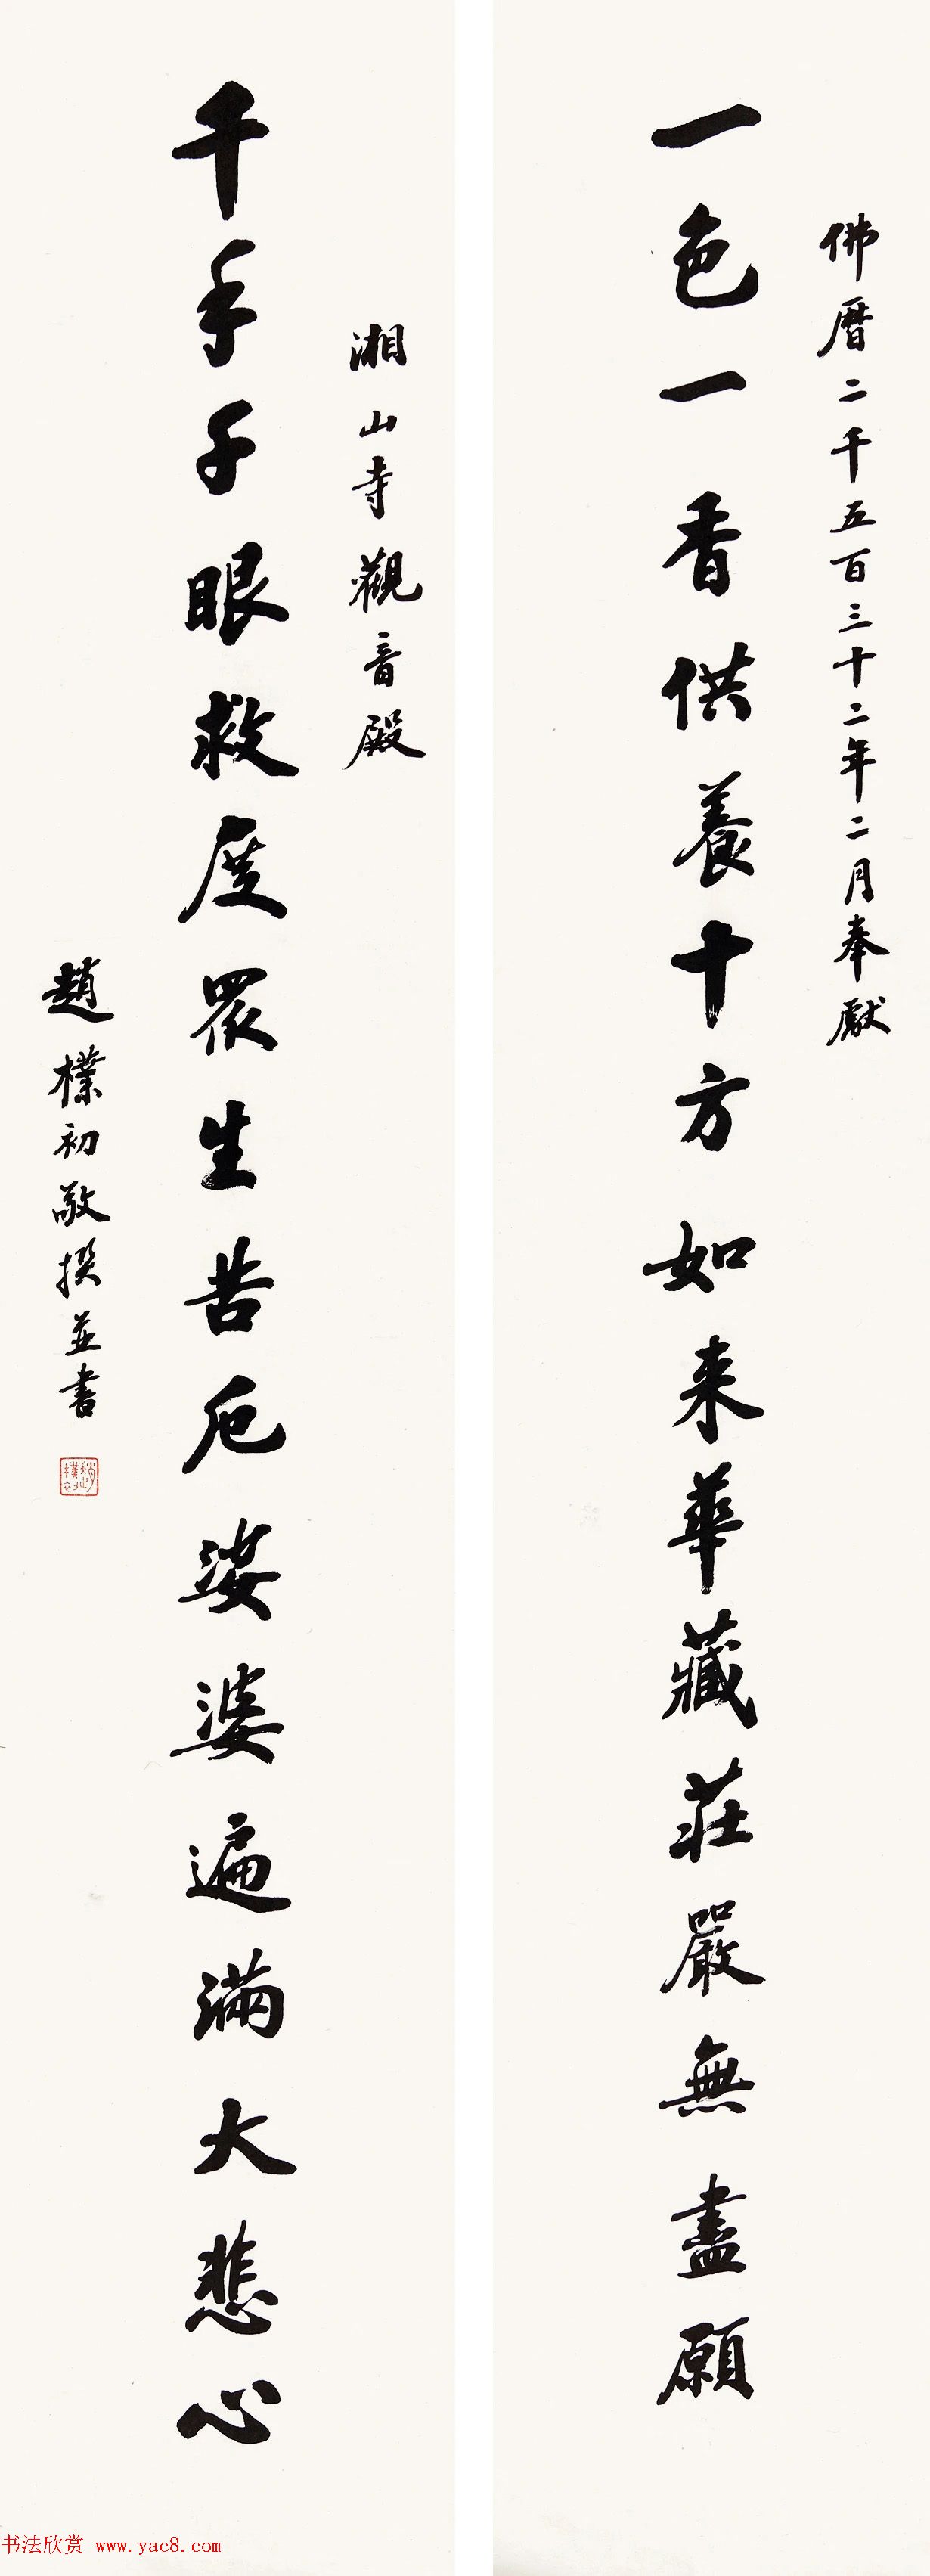 佛暦二千五百三十二年二月奉獻
一色一香供養十方如来華藏莊嚴無盡願
湘山寺觀音殿
千手千眼救度眾生苦厄娑婆遍滿大悲心
趙樸初敬撰並書
趙樸初
书法欣赏 www.yac8.com